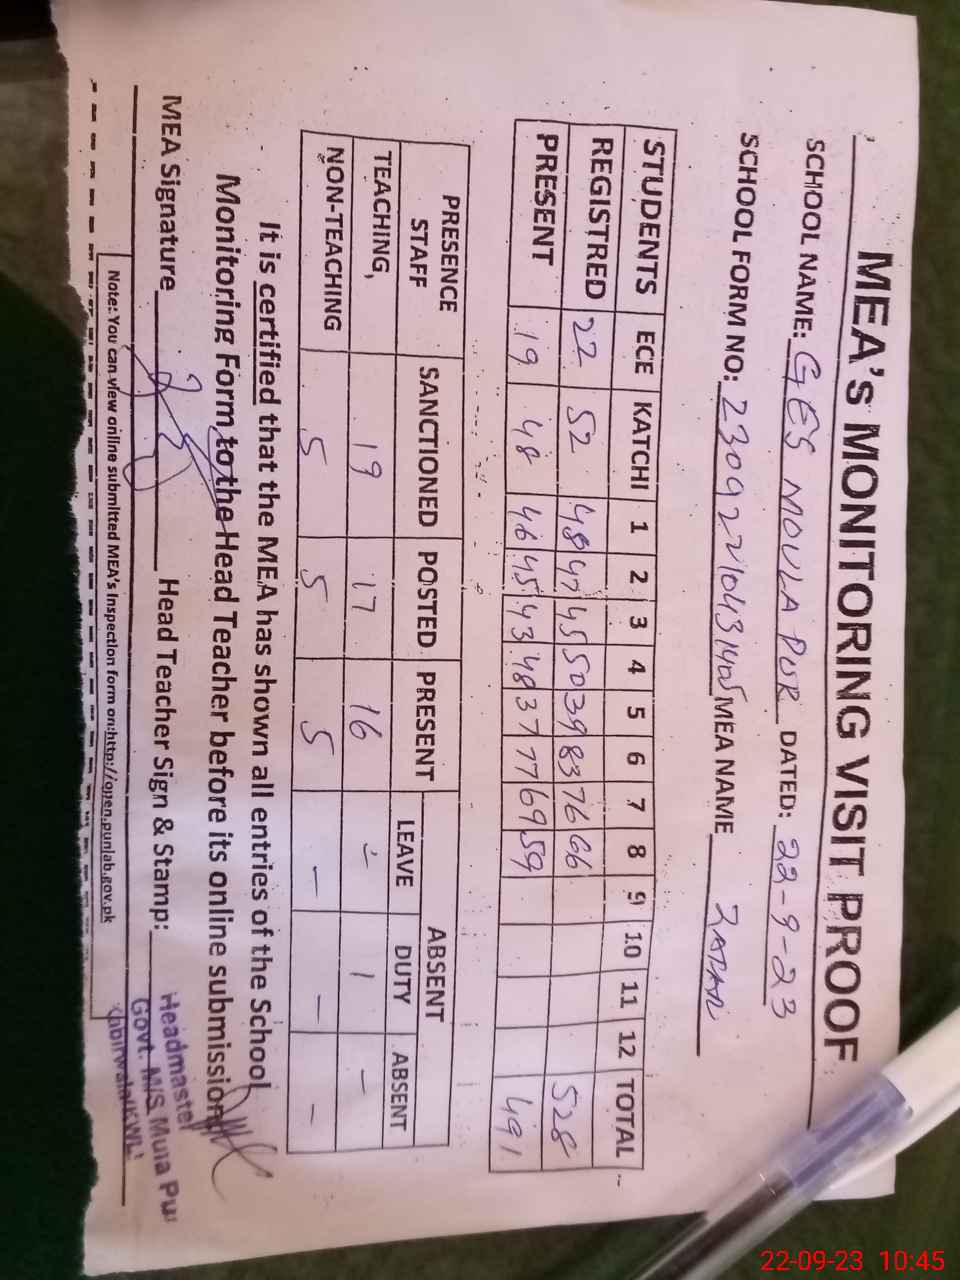 MEA's MONITORING VISIT PROOF
SCHOOL NAME: GES MOULA PUR DATED: 22-9-23
SCHOOL FORM NO: MEA NAME ZAFAR
STUDENTS ECE KATCHI 1 2 3 4 5 6 7 8 9 10 11 12 TOTAL
REGISTRED 22 52 48 47 45 50 39 83 76 66 528
PRESENT 19 48 46 45 43 48 37 77 69 59 491
PRESENCE STAFF SANCTIONED POSTED PRESENT ABSENT
LEAVE DUTY ABSENT
TEACHING, 19 17 16 - 1 -
NON-TEACHING 5 5 5 - - -
It is certified that the MEA has shown all entries of the School
Monitoring Form to the Head Teacher before its online submission
MEA Signature Head Teacher Sign & Stamp:
Headmaster
Govt. M/S Mula Pu
Kabirwala(KWL)
Note: You can view online submitted MEA's Inspection form on:http://open.punjab.gov.pk
22-09-23 10:45